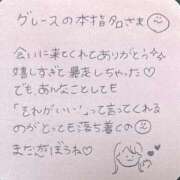 グレースの本指名さま
会いに来てくれてありがとう
嬉しすぎて暴走しちゃった♡
でも、あんなことしても
「それがいい！」って言ってくれる
のがとっても落ち着く
また遊ぼうね♡